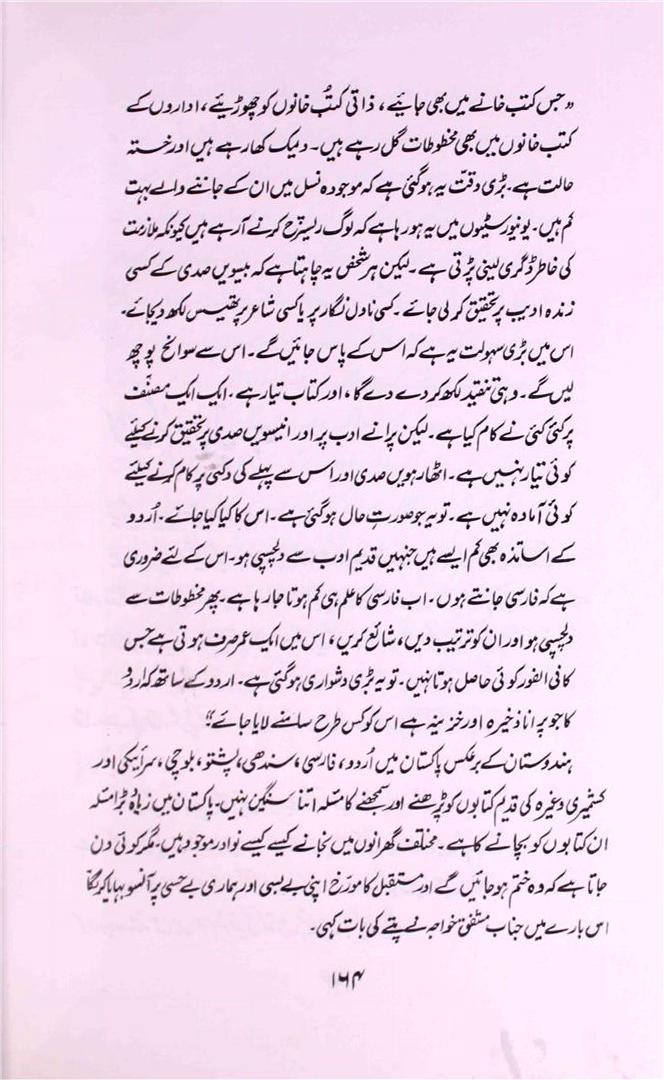 ”جس کتب خانے میں بھی جائیے، ذاتی کتب خانوں کو چھوڑیئے، اداروں کے
کتب خانوں میں بھی مخطوطات گل رہے ہیں۔ دیمک کھا رہے ہیں اور خستہ
حالت ہے۔ بڑی دقت یہ ہوگئی ہے کہ موجودہ نسل میں ان کے جاننے والے بہت
کم ہیں۔ یونیورسٹیوں میں یہ ہو رہا ہے کہ لوگ ریسرچ کرنے آرہے ہیں کیونکہ ملازمت
کی خاطر ڈگری لینی پڑتی ہے۔ لیکن ہر شخص یہ چاہتا ہے کہ بیسویں صدی کے کسی
زندہ ادیب پر تحقیق کرلی جائے۔ کسی ناول نگار پر یا کسی شاعر پر تھیسس لکھ دیجائے۔
اس میں بڑی سہولت یہ ہے کہ اس کے پاس جائیں گے۔ اس سے سوانح پوچھ
لیں گے۔ وہی تنقید لکھ کر دے دے گا، اور کتاب تیار ہے۔ ایک ایک مصنّف
پر کئی کئی نے کام کیا ہے۔ لیکن پرانے ادب پر اور انیسویں صدی پر تحقیق کرنے کیلئے
کوئی تیار نہیں ہے۔ اٹھارہویں صدی اور اس سے پہلے کی دکنی پر کام کرنے کیلئے
کوئی آمادہ نہیں ہے۔ تو یہ جو صورتِ حال ہوگئی ہے۔ اس کا کیا کیا جائے۔ اُردو
کے اساتذہ بھی کم ایسے ہیں جنہیں قدیم ادب سے دلچسپی ہو۔ اس کے لئے ضروری
ہے کہ فارسی جانتے ہوں۔ اب فارسی کا علم ہی کم ہوتا جا رہا ہے۔ پھر مخطوطات سے
دلچسپی ہو اور ان کو ترتیب دیں، شائع کریں، اس میں ایک عمر صرف ہوتی ہے جس
کا فی الفور کوئی حاصل ہوتا نہیں۔ تو یہ بڑی دشواری ہوگئی ہے۔ اردو کے ساتھ کہ اردو
کا جو پرانا ذخیرہ اور خزینہ ہے اس کو کس طرح سامنے لایا جائے“
ہندوستان کے برعکس پاکستان میں اُردو، فارسی، سندھی، پشتو، بلوچی، سرائیکی اور
کشمیری وغیرہ کی قدیم کتابوں کو پڑھنے اور سمجھنے کا مسئلہ اتنا سنگین نہیں۔ پاکستان میں زیادہ بڑا مسئلہ
ان کتابوں کو بچانے کا ہے۔ مختلف گھرانوں میں نجانے کیسے کیسے نوادر موجود ہیں۔ مگر کوئی دن
جاتا ہے کہ وہ ختم ہوجائیں گے اور مستقبل کا مورّخ اپنی بے بسی اور ہماری بے حسی پر آنسو بہایا کریگا
اس بارے میں جناب مشفق خواجہ نے پتے کی بات کہی۔
۱۶۴